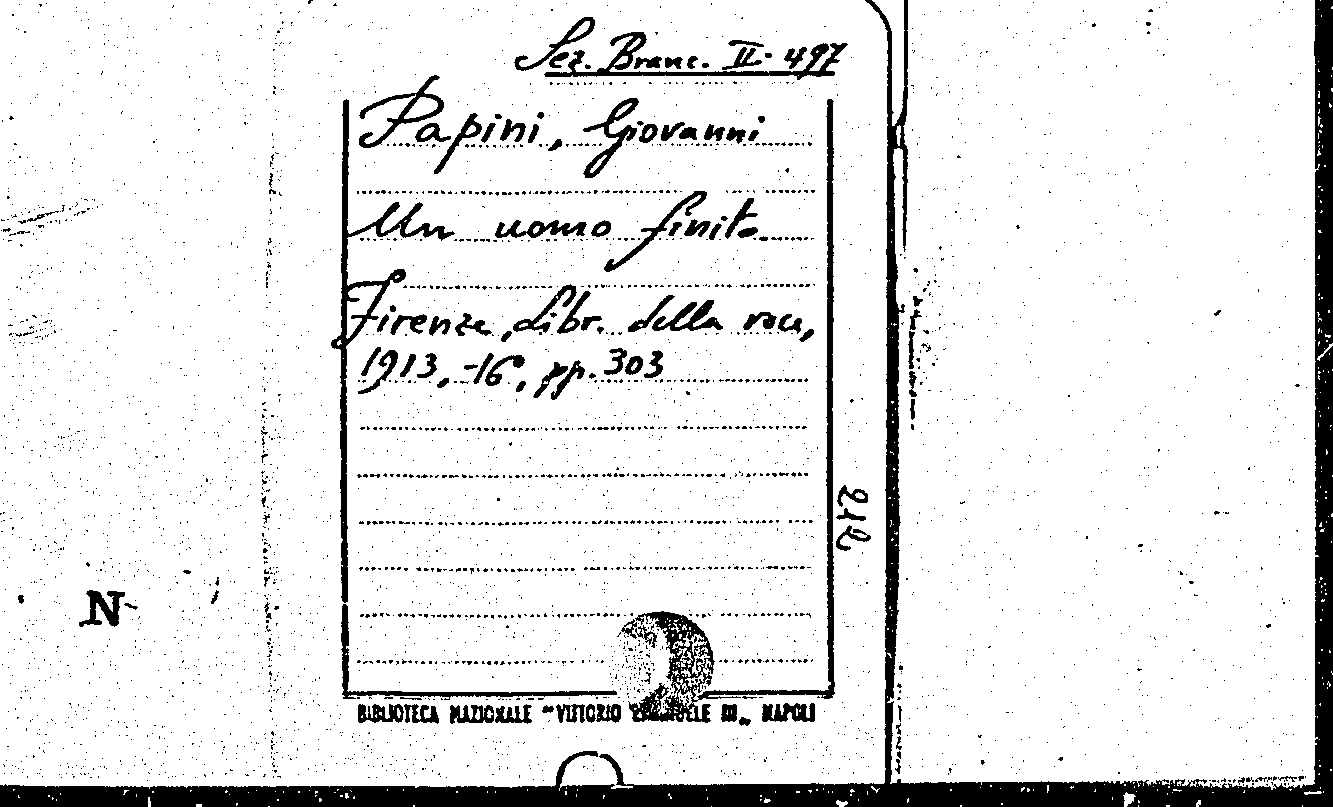 Sez. Branc. II. 497
Papini, Giovanni
Un uomo finito
Firenze, Libr. della voce,
1913, -16, pp. 303
212
N
BIBLIOTECA NAZIONALE "VITTORIO EMANUELE III„ NAPOLI